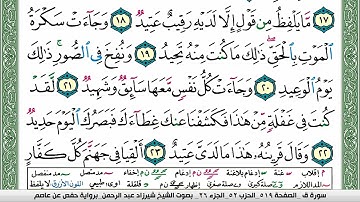 ١٧ مَّا يَلْفِظُ مِن قَوْلٍ إِلَّا لَدَيْهِ رَقِيبٌ عَتِيدٌ ١٨ وَجَآءَتْ سَكْرَةُ
الْمَوْتِ بِالْحَقِّ ۖ ذَٰلِكَ مَا كُنتَ مِنْهُ تَحِيدُ ١٩ وَنُفِخَ فِي الصُّورِ ۚ ذَٰلِكَ
يَوْمُ الْوَعِيدِ ٢٠ وَجَآءَتْ كُلُّ نَفْسٍ مَّعَهَا سَآئِقٌ وَشَهِيدٌ ٢١ لَّقَدْ
كُنتَ فِي غَفْلَةٍ مِّنْ هَٰذَا فَكَشَفْنَا عَنكَ غِطَآءَكَ فَبَصَرُكَ الْيَوْمَ حَدِيدٌ
٢٢ وَقَالَ قَرِينُهُ هَٰذَا مَا لَدَيَّ عَتِيدٌ ٢٣ أَلْقِيَا فِي جَهَنَّمَ كُلَّ كَفَّارٍ
سورة ق الصفحة ٥١٩ الحزب ٥٢ الجزء ٢٦ بصوت الشيخ شيرزاد عبد الرحمن برواية حفص عن عاصم